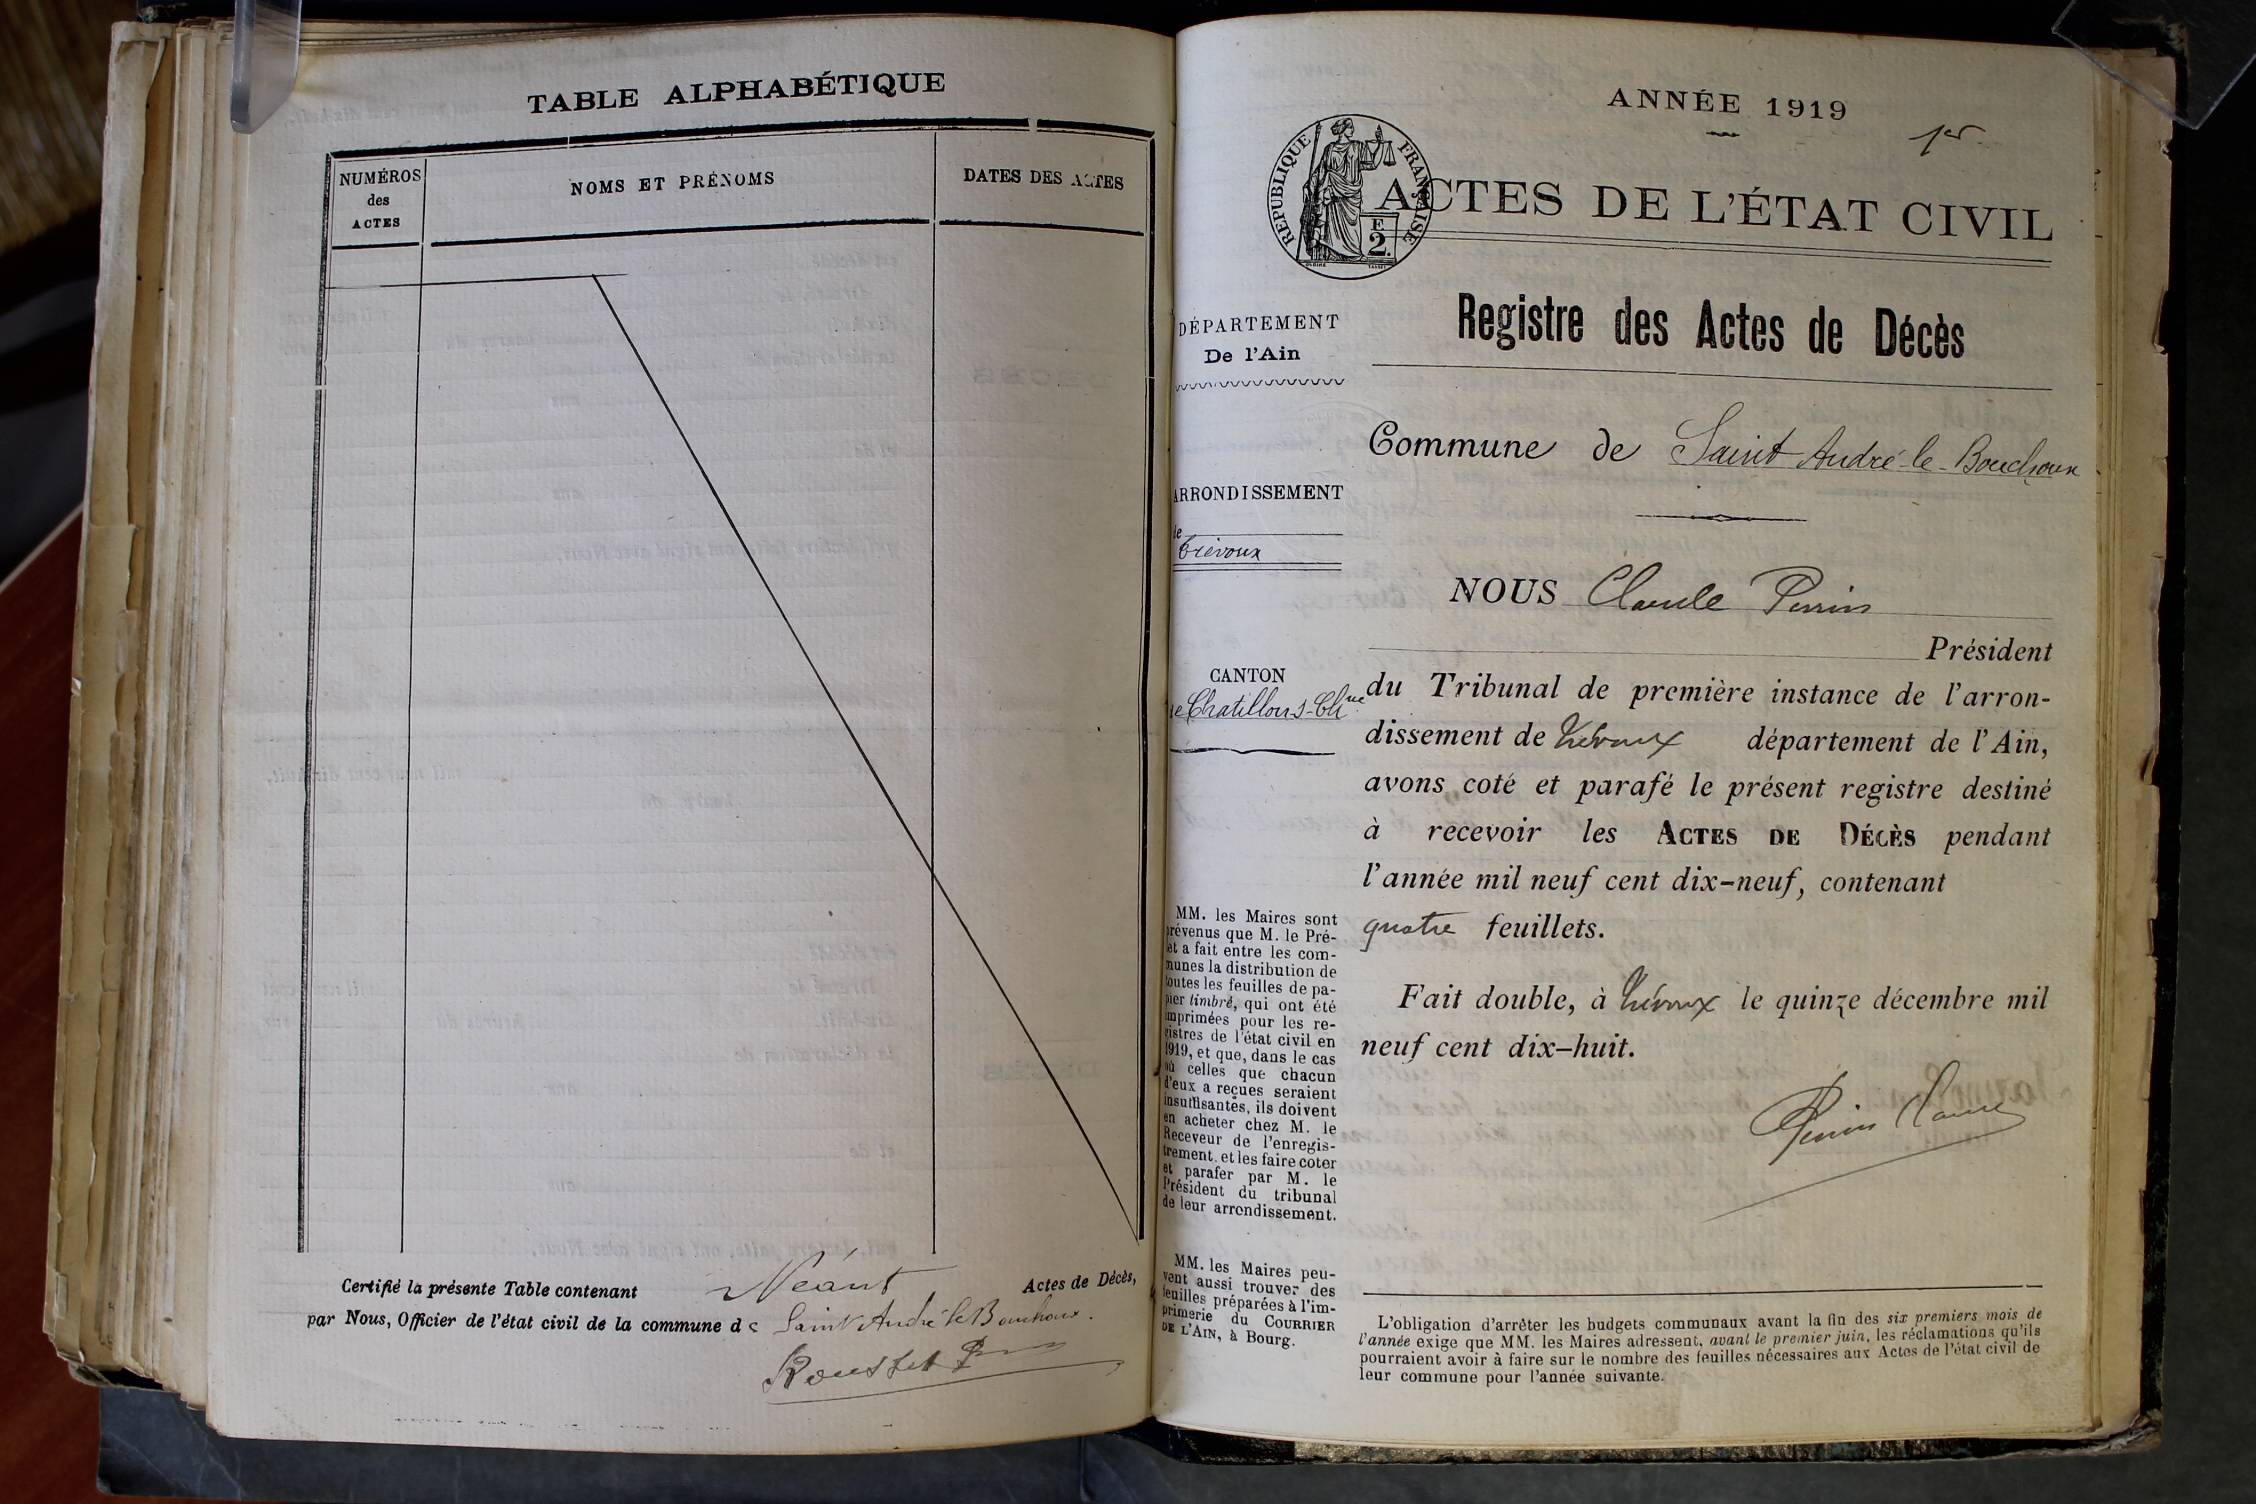 TABLE ALPHABÉTIQUE
NUMÉROS
des
ACTES
NOMS ET PRÉNOMS
DATES DES ACTES
Certifié la présente Table contenant Néant Actes de Décès,
par Nous, Officier de l'état civil de la commune de Saint André le Bouchoux.
Rousset
ANNÉE 1919
1er
RÉPUBLIQUE FRANÇAISE
E
2.
ACTES DE L'ÉTAT CIVIL
Registre des Actes de Décès
DÉPARTEMENT
De l'Ain
Commune de Saint André-le-Bouchoux
ARRONDISSEMENT
de
Trévoux
NOUS Claude Perrin
Président
CANTON
de Chatillon s-Chne
du Tribunal de première instance de l'arron-
dissement de Trévoux département de l'Ain,
avons coté et parafé le présent registre destiné
à recevoir les ACTES DE DÉCÈS pendant
l'année mil neuf cent dix-neuf, contenant
quatre feuillets.
Fait double, à Trévoux le quinze décembre mil
neuf cent dix-huit.
Perrin Claude
MM. les Maires sont
prévenus que M. le Pré-
fet a fait entre les com-
munes la distribution de
toutes les feuilles de pa-
pier timbré, qui ont été
imprimées pour les re-
gistres de l'état civil en
1919, et que, dans le cas
où celles que chacun
d'eux a reçues seraient
insuffisantes, ils doivent
en acheter chez M. le
Receveur de l'enregis-
trement, et les faire coter
et parafer par M. le
Président du tribunal
de leur arrondissement.
MM. les Maires peu-
vent aussi trouver des
feuilles préparées à l'im-
primerie du COURRIER
DE L'AIN, à Bourg.
L'obligation d'arrêter les budgets communaux avant la fin des six premiers mois de
l'année exige que MM. les Maires adressent, avant le premier juin, les réclamations qu'ils
pourraient avoir à faire sur le nombre des feuilles nécessaires aux Actes de l'état civil de
leur commune pour l'année suivante.